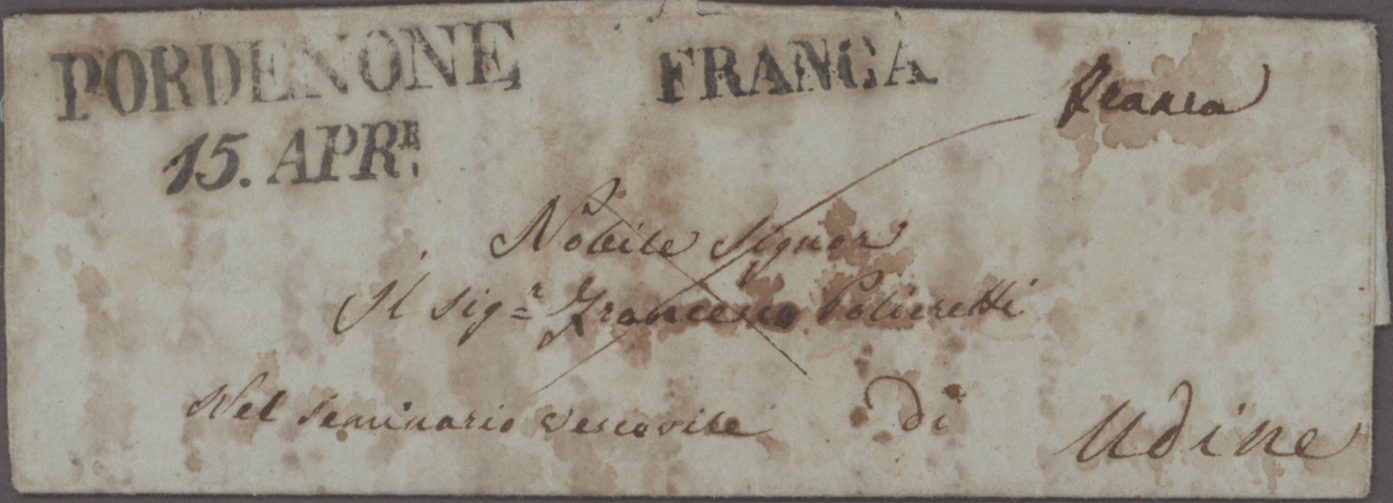 PORDENONE FRANCA
15. APR.E
franca
Nobile Signor
Il sig.r Francesco Policretti
Nel seminario vescovile di Udine